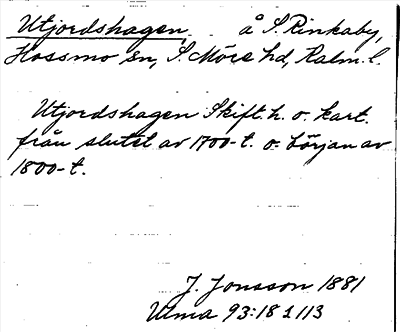 Utjordshagen. å S. Rinkaby,
Hossmo sn, S. Möre hd, Kalm. l.
Utjordshagen Skift. h. o. kart.
från slutet av 1700-t. o. början av
1800-t.
J. Jonsson 1881
Ulma 93:18 s 113